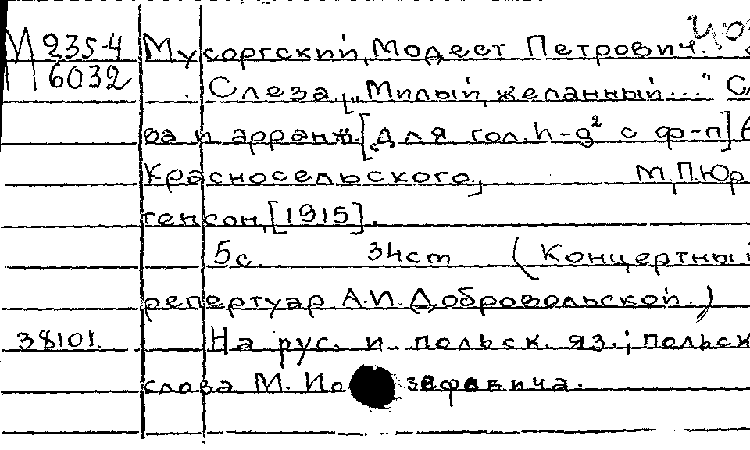 М 2354 Мусоргский, Модест Петрович.
П 6032 Слеза. [„Милый, желанный..."
ва и арранж. [для гол. h-g² с ф-п]
Красносельского, М., П. Юр
генсон, [1915].
5с. 34cm (Концертны
репертуар А.И. Добровольской.)
38101. На рус. и польск. яз.; польск
слова М. Иозефовича.